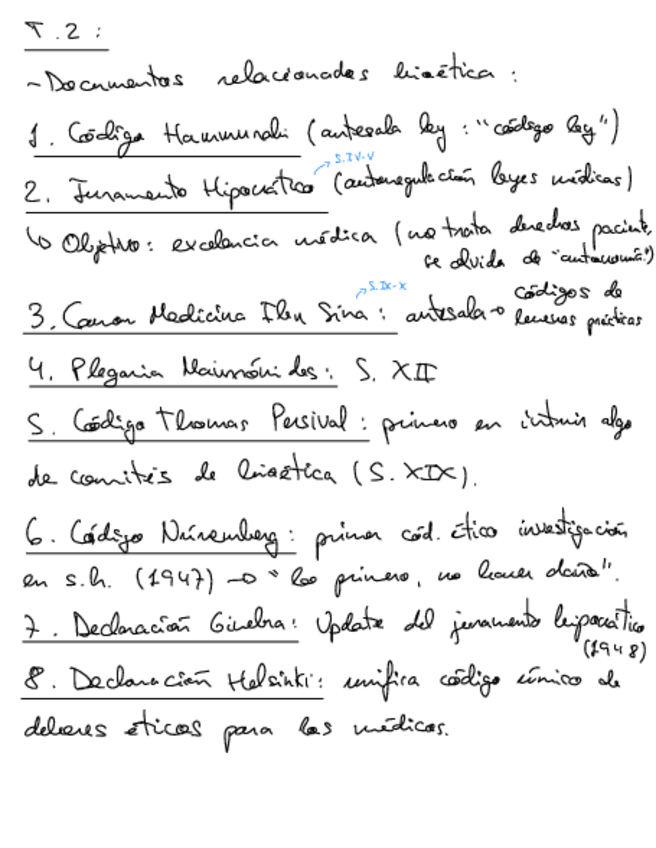 T.2:
- Documentos relacionados bioética:
1. Código Hammurabi (antesala ley: "código ley")
S.IV-V
2. Juramento Hipocrático (autorregulación leyes médicas)
↳ Objetivo: excelencia médica (no trata derechos paciente,
se olvida de "autonomía")
S.IX-X
3. Canon Medicina Ibn Sina: antesala → códigos de
buenas prácticas
4. Plegaria Maimónides: S. XII
5. Código Thomas Persival: primero en intuir algo
de comités de bioética (S. XIX).
6. Código Núremberg: primer cód. ético investigación
en s.h. (1947) → "lo primero, no hacer daño".
7. Declaración Ginebra: Update del juramento hipocrático
(1948)
8. Declaración Helsinki: unifica código único de
deberes éticos para los médicos.